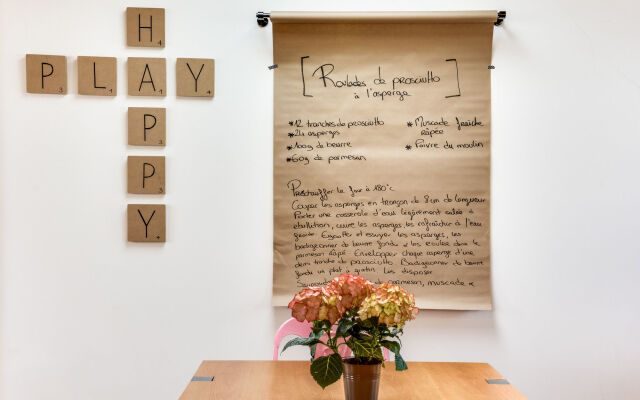 HAPPY
PLAY
[Roulades de prosciutto
à l'asperge]
*12 tranches de prosciutto
*24 asperges
*100g de beurre
*60g de parmesan
*Muscade fraîche
râpée
*Poivre du moulin
Préchauffer le four à 180°c
Couper les asperges en tronçon de 8 cm de longueur
Porter une casserole d'eau légèrement salée à
ébullition, cuire les asperges, les rafraîchir à l'eau
froide. Egoutter et essuyer les asperges, les
badigeonner de beurre fondu et les rouler dans le
parmesan râpé. Envelopper chaque asperge d'une
demi tranche de prosciutto. Badigeonner de beurre
fondu un plat à gratin. Les disposer
de parmesan, muscade